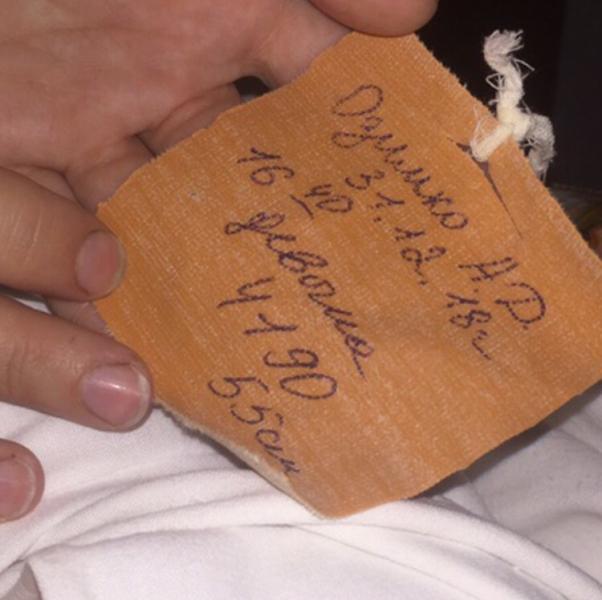 Озимко А.Д.
31.12.18г
16 40
девочка
4190
55см